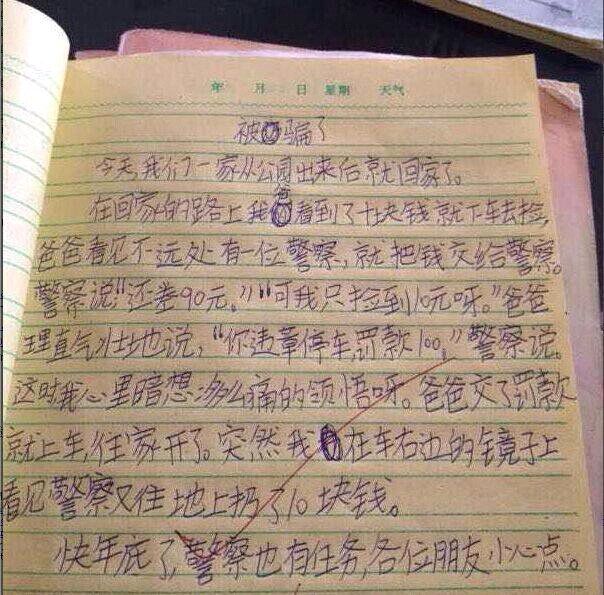 年 月 日 星期 天气
被骗了
今天我们一家从公园出来后就回家了。
在回家的路上我爸看到了十块钱就下车去捡,
爸爸看见不远处有一位警察,就把钱交给警察。
警察说"还差90元。""可我只捡到10元呀。"爸爸
理直气壮地说,"你违章停车,罚款100。"警察说。
这时我心里暗想:多么痛的领悟呀。爸爸交了罚款
就上车,往家开了。突然我在车右边的镜子上
看见警察又往地上扔了10块钱。
快年底了,警察也有任务,各位朋友,小心点。